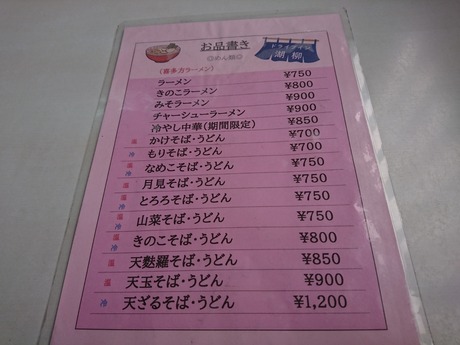 お品書き
◎めん類◎
ドライブイン
湖柳
(喜多方ラーメン)
ラーメン ¥750
きのこラーメン ¥800
みそラーメン ¥900
チャーシューラーメン ¥900
冷やし中華(期間限定) ¥850
温 かけそば・うどん ¥700
冷 もりそば・うどん ¥700
温 冷 なめこそば・うどん ¥750
温 月見そば・うどん ¥750
温 冷 とろろそば・うどん ¥750
温 冷 山菜そば・うどん ¥750
温 冷 きのこそば・うどん ¥800
温 冷 天麩羅そば・うどん ¥850
温 天玉そば・うどん ¥900
冷 天ざるそば・うどん ¥1,200